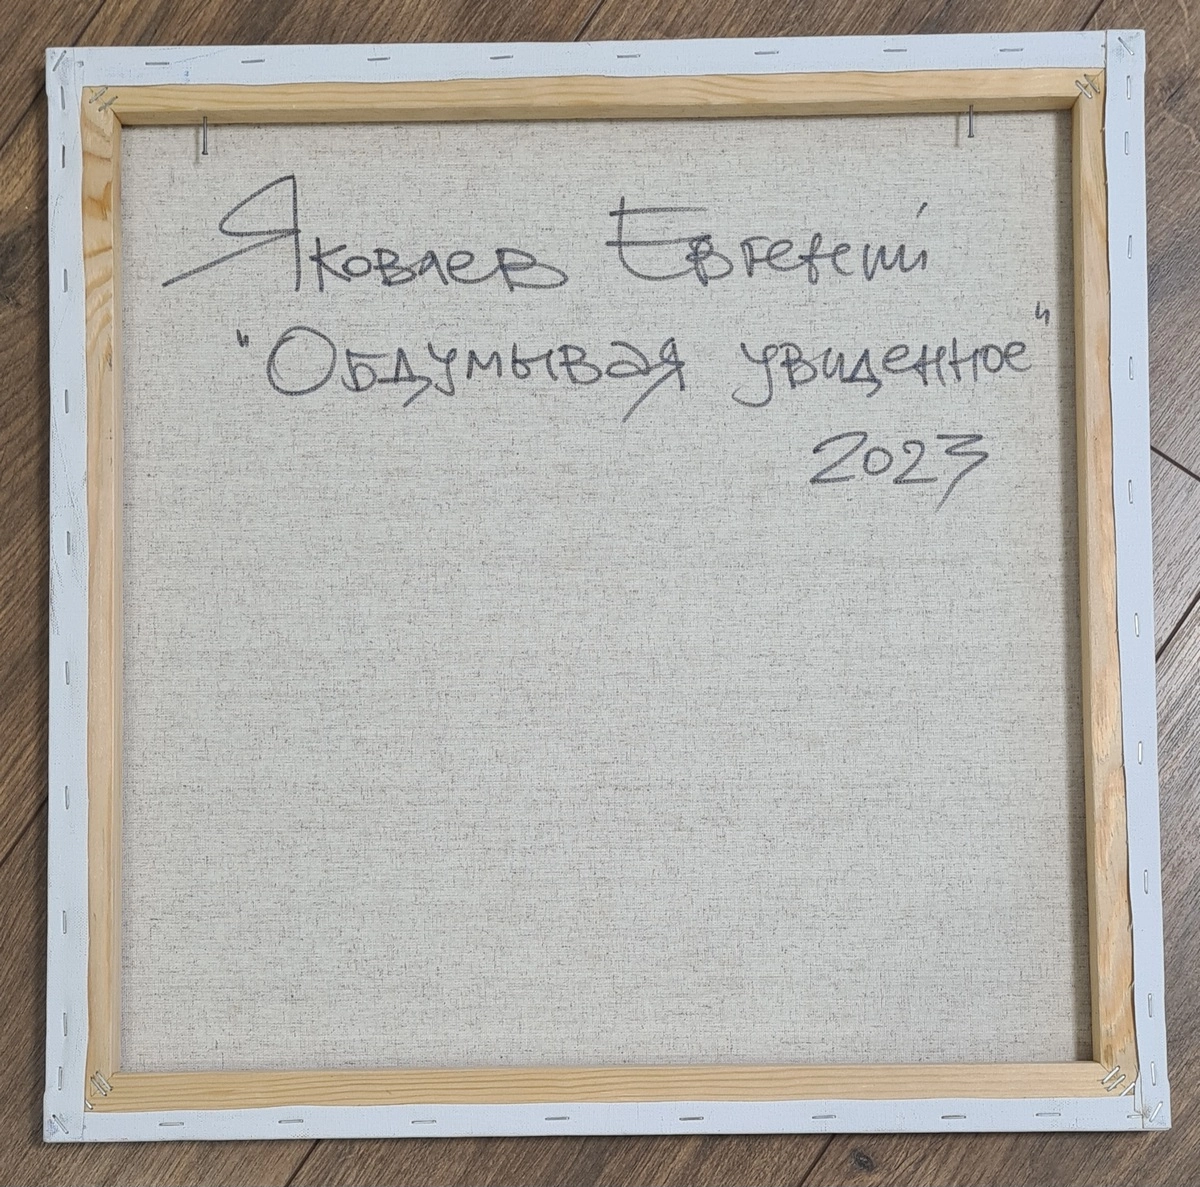 Яковлев Евгений
"Обдумывая увиденное"
2023